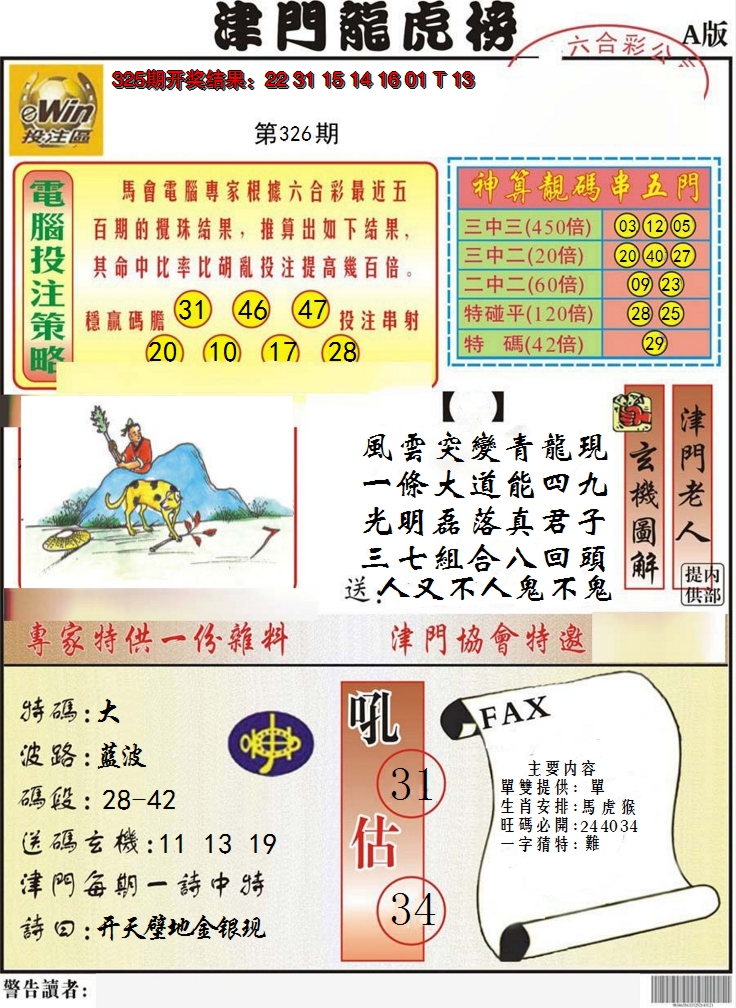 津門龍虎榜
六合彩公
A版
eWin
投注區
325期开奖结果：22 31 15 14 16 01 T 13
第326期
電腦投注策略
馬會電腦專家根據六合彩最近五
百期的攪珠结果，推算出如下结果，
其命中比率比胡亂投注提高幾百倍。
穩贏碼膽 31 46 47 投注串射
20 10 17 28
神算靚碼串五門
三中三(450倍) 03 12 05
三中二(20倍) 20 40 27
二中二(60倍) 09 23
特碰平(120倍) 28 25
特 碼(42倍) 29
【 】
風雲突變青龍現
一條大道能四九
光明磊落真君子
三七組合八回頭
送：人又不人鬼不鬼
玄機圖解
津門老人
内部提供
專家特供一份雜料
津門協會特邀
特碼：大
波路：藍波
碼段：28-42
送碼玄機：11 13 19
津門每期一詩中特
詩曰：开天壁地金银现
吼
31
估
34
FAX
主要内容
單雙提供：單
生肖安排：馬虎猴
旺碼必開：244034
一字猜特：難
警告讀者：